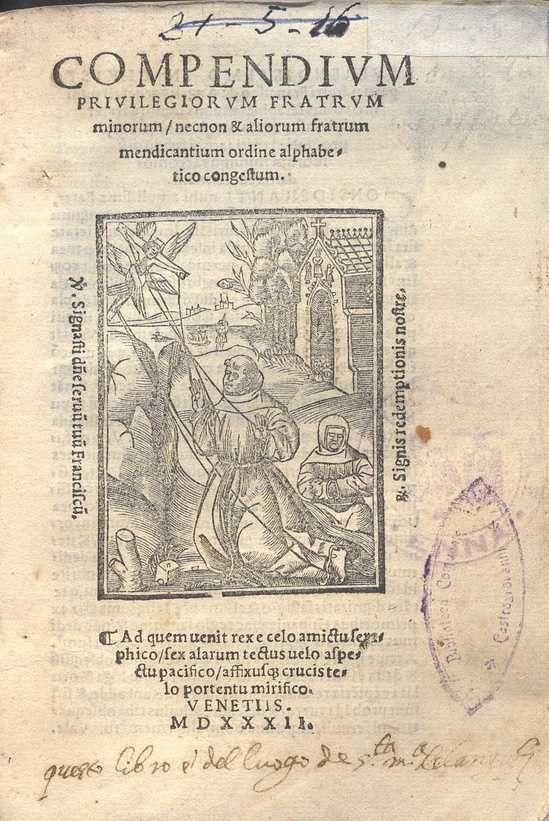 21-5-16
COMPENDIVM
PRIVILEGIORVM FRATRVM
minorum / necnon & aliorum fratrum
mendicantium ordine alphabe-
tico congestum.
℣. Signasti dñe seruũ tuũ Franciscũ,
℟. Signis redemptionis nostre,
¶ Ad quem uenit rex e celo amictu sera-
phico / sex alarum tectus uelo aspe-
ctu pacifico / affixusqȝ crucis te-
lo portentu mirifico.
VENETIIS.
MDXXXII.
questo libro è del luogo de s.ta m.a